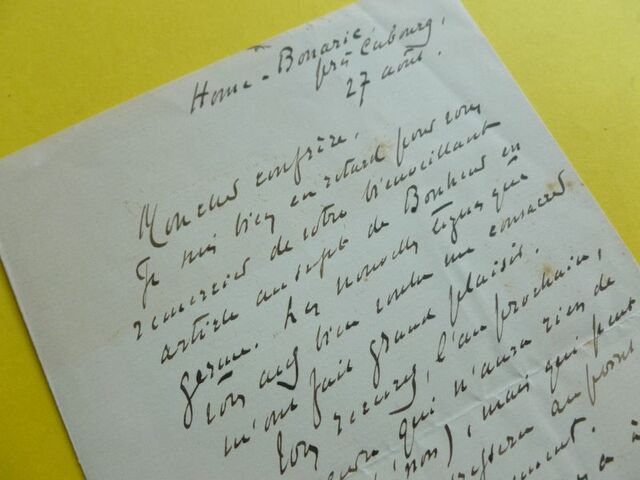 Home-Bonarie
près Cabourg,
27 août.
Mon cher confrère,
Je suis bien en retard pour vous
remercier de votre bienveillant
article au sujet de Bonheur en
germe. Les nouvelles lignes que
vous avez bien voulu me consacrer
m'ont fait grand plaisir.
Vous recevrez, l'an prochain,
qui n'aura rien de
non), mais qui peut
au point